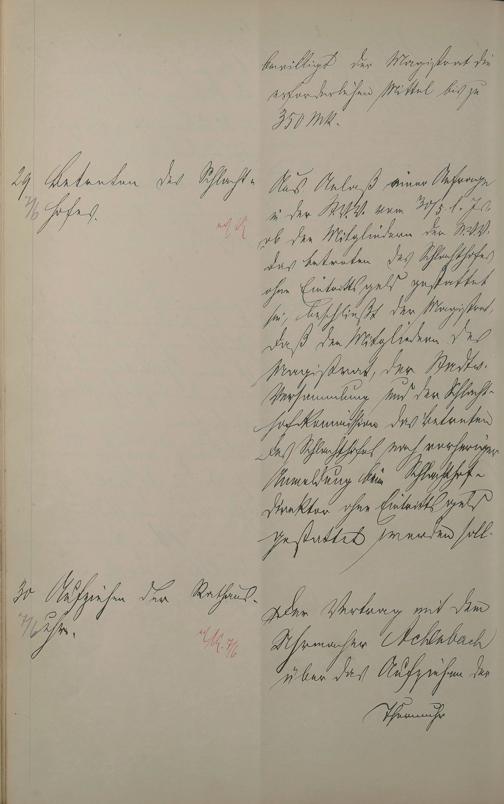 bewilligt der Magistrat die
erforderlichen Mittel bis zu
350 Mk.
29 Betreten des Schlacht-
7/6 hofes.
Aus Anlaß einer Anfrage
in der St.V.V. vom 30/5 l. Js.,
ob den Mitgliedern der St.V.V.
das Betreten des Schlachthofes
ohne Eintrittsgeld gestattet
sei, beschließt der Magistrat,
daß den Mitgliedern des
Magistrats, der Stadtv.
Versammlung und der Schlacht-
hof-Kommission das Betreten
des Schlachthofes nach vorheriger
Anmeldung beim Schlachthof-
direktor ohne Eintrittsgeld
gestattet werden soll.
30 Aufziehen der Rathaus-
7/6 uhr.
7/6
Der Vertrag mit dem
Uhrmacher Achenbach
über das Aufziehen der
Thurmuhr